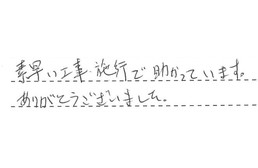 素早い工事・施行で助かっています。
ありがとうございました。